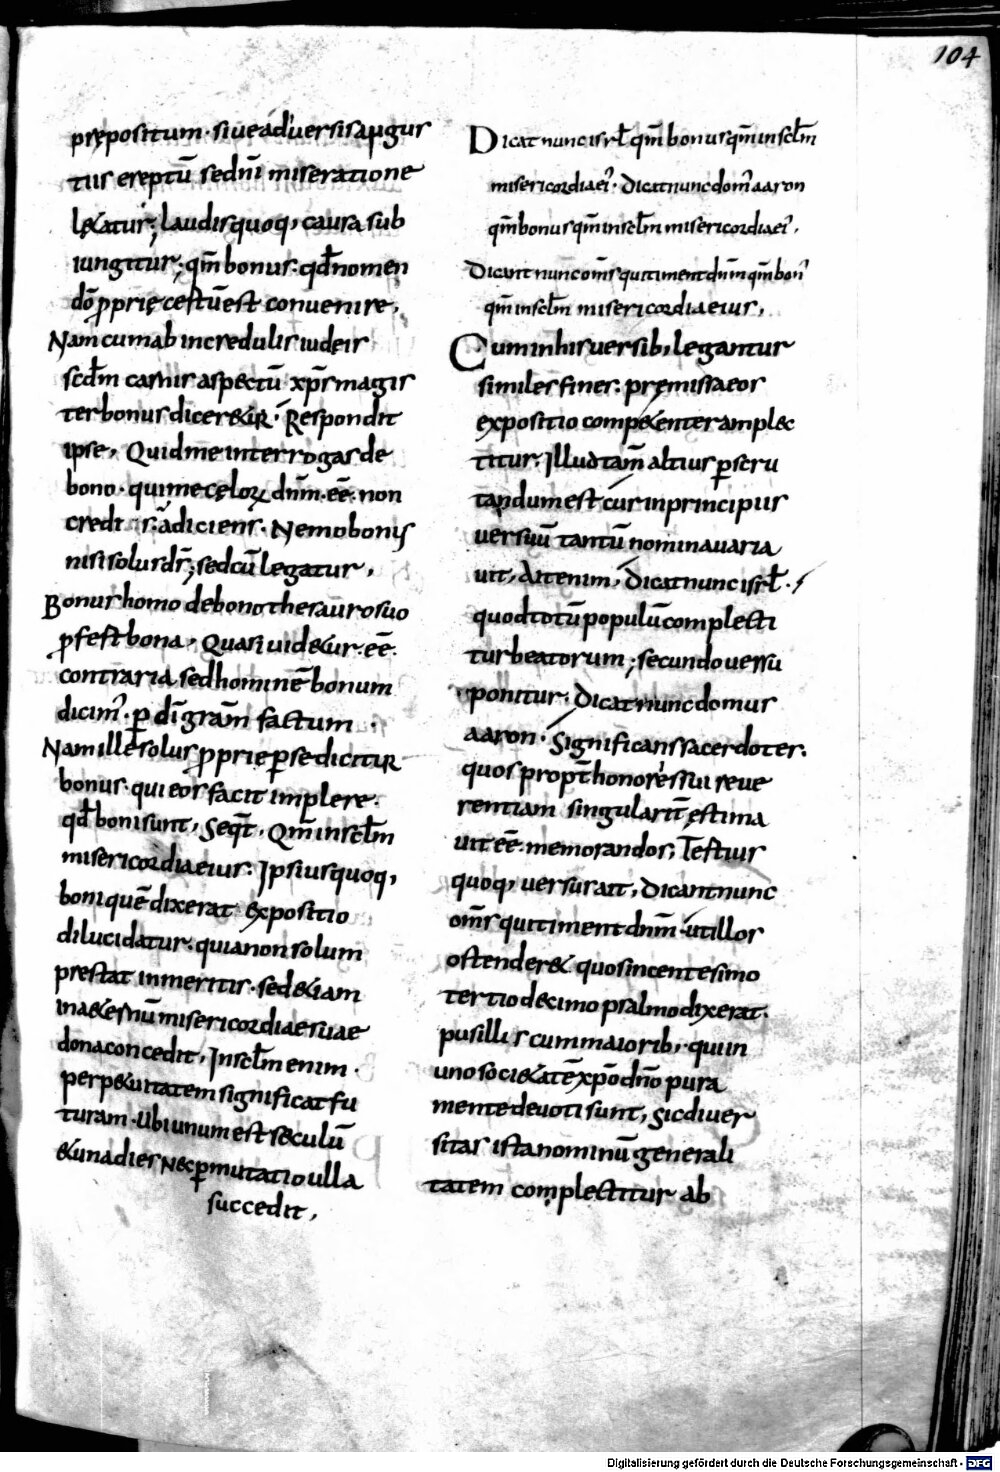 104
prępositum · siue aduersis angus
tiis ereptū sed dn̄i miseratione
lętatur; laudis quoq, causa sub
iungitur; qm̄ bonus: qđ nomen
dō ꝓprię certū est conuenire,
Nam cum ab incredulis iudeis
scđm carnis aspectū xp̄s magis
ter bonus diceretur · Respondit
ipse, Quid me interrogas de
bono · qui me cęloꝝ dn̄m · eē · non
credis · adiciens · Nemo bonus
nisi solus ds̄; sed cū legatur,
Bonus homo de bono thesauro suo
ꝓfert bona, Quasi uidetur · eē ·
contraria sed hominē bonum
dicim᾽ · ꝑ dī grām̄ factum ·
Nam ille solus ꝓprie ꝑ se dicitur
bonus · qui eos facit implere ·
qđ boni sunt, Seqt̄, Qm̄ in sclm̄
misericordia eius · Ipsius quoq,
boni quē dixerat expositio
dilucidatur · quia non solum
prestat inmeritis · sed etiam
in aeternū misericordiae suae
dona concedit, In sclm̄ enim ·
perpetuitatem significat fu
turam · Ubi unum est seculū
et una dies Nec ꝑmutatio ulla
succedit,
Dicat nunc isrł qm̄ bonus qm̄ in sclm̄
misericordia ei᾽ · Dicat nunc dom᾽ aaron
qm̄ bonus qm̄ in sclm̄ misericordia ei᾽,
Dicant nunc om̄s qui timent dn̄m qm̄ bon᾽
qm̄ in sclm̄ misericordia eius,
Cum in his uersib, legantur
similes fines: pręmissa eos
expositio competenter amplec
titur · Illud tam̄ altius ꝑscru
tandum est cur in principiis
uersuū tantū nomina uaria
uit, Ait enim, Dicat nunc isrł ·
quod totū populū complecti
tur beatorum; secundo uersu
ponitur · Dicat nunc domus
aaron · Significans sacerdotes.
quos propt̄ honorē sui reue
rentiam singularit̄ ęstima
uit eē memorandos; Tertius
quoq, uersus ait, Dicant nunc
om̄s qui timent dn̄m · ut illos
ostenderet quos in centesimo
tertio decimo psalmo dixerat ·
pusillis cum maiorib, · qui in
uno societatē xp̄o dn̄o pura
mente deuoti sunt, Sic diuer
sitas ista nominū generali
tatem complectitur ab
Digitalisierung gefördert durch die Deutsche Forschungsgemeinschaft - DFG